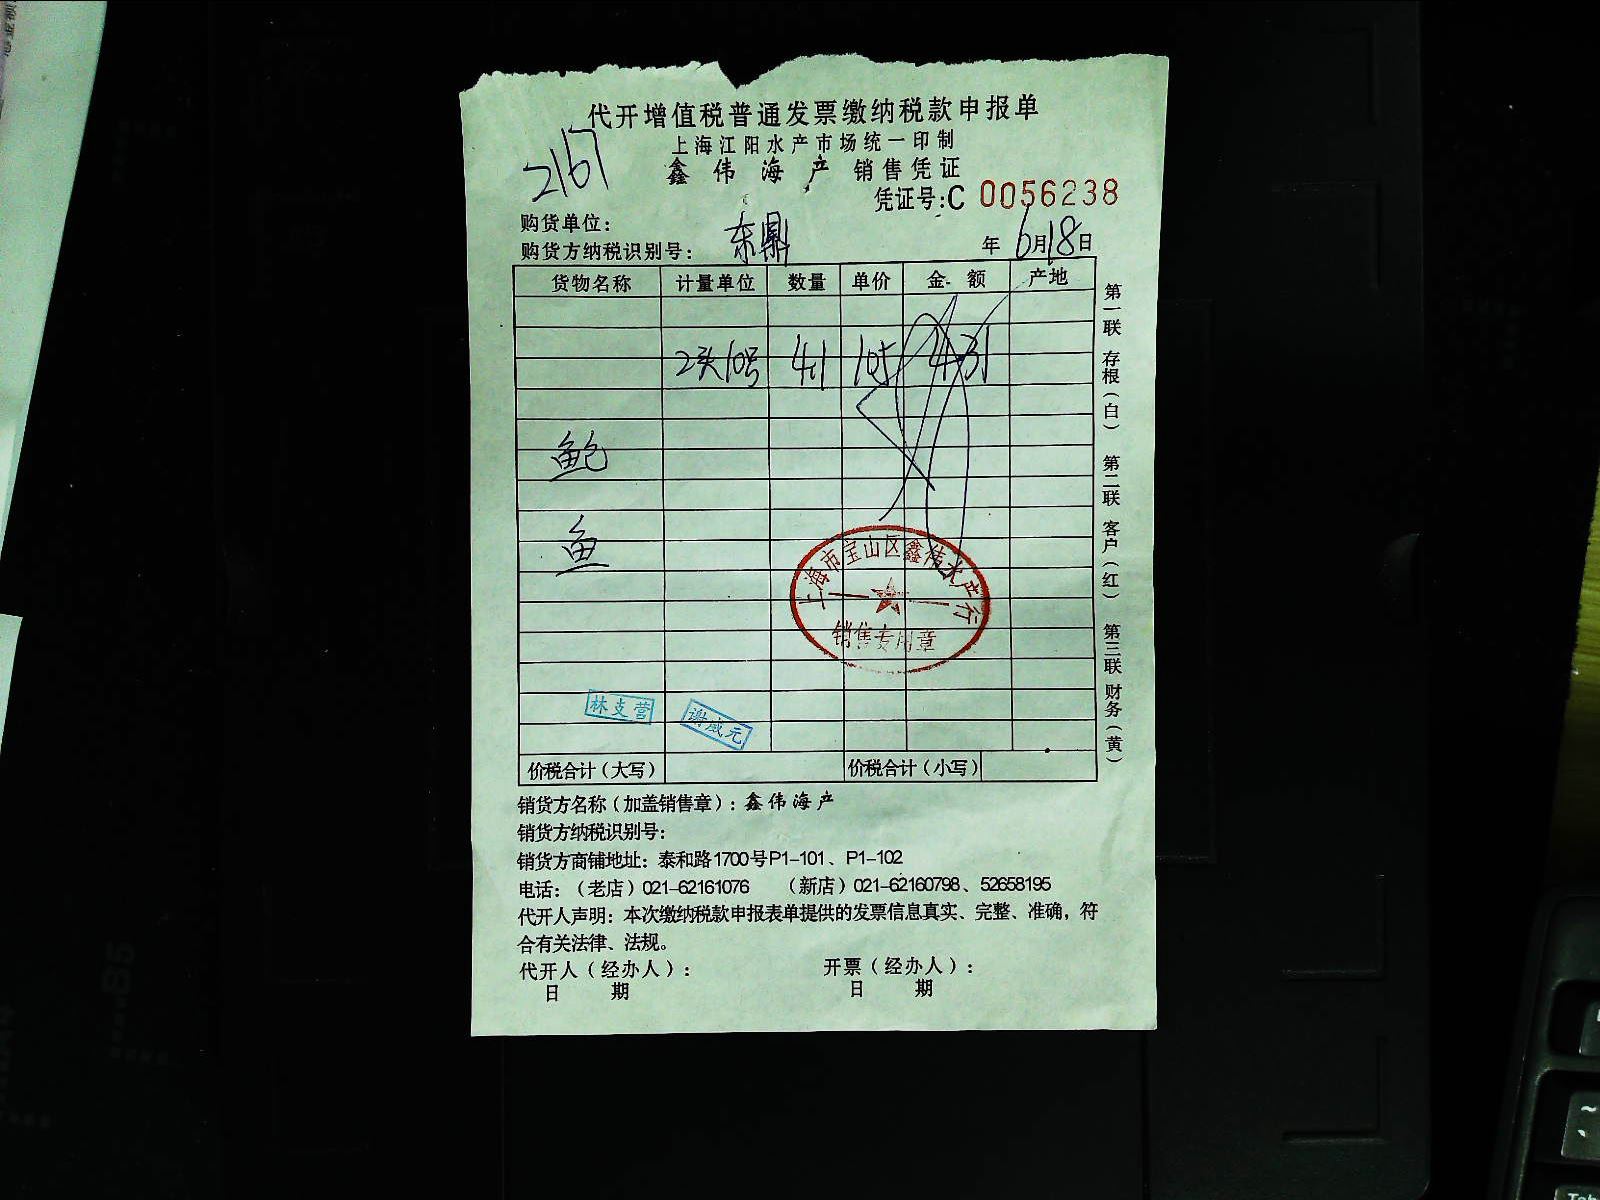 代开增值税普通发票缴纳税款申报单
上海江阳水产市场统一印制
2167
鑫伟海产 销售凭证
凭证号:C 0056238
购货单位:
东鼎
购货方纳税识别号: 年 6月18日
货物名称 计量单位 数量 单价 金额 产地
2头10号 4.1 105 431
鲍
鱼
上海市宝山区鑫伟水产行
销售专用章
林支营 谢成元
价税合计(大写) 价税合计(小写)
第一联 存根(白) 第二联 客户(红) 第三联 财务(黄)
销货方名称(加盖销售章):鑫伟海产
销货方纳税识别号:
销货方商铺地址:泰和路1700号P1-101、P1-102
电话:(老店)021-62161076 (新店)021-62160798、52658195
代开人声明:本次缴纳税款申报表单提供的发票信息真实、完整、准确,符
合有关法律、法规。
代开人(经办人): 开票(经办人):
日 期 日 期